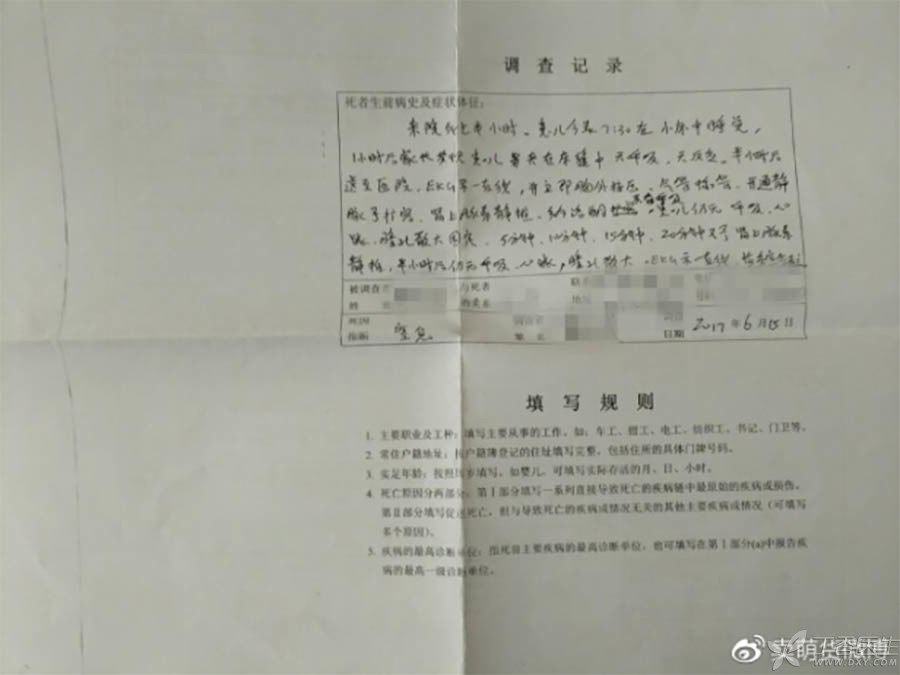 调查记录
死者生前病史及症状体征：
来院 半小时。患儿今晨7:30在小床中睡觉，
1小时后家长发现患儿 在床缝中 无呼吸、无反应。半小时后
送至医院，EKG示一直线，并立即胸外按压、气管插管、开通静
脉予 肾上腺素静推、纳洛酮 患儿仍无呼吸、心
跳、瞳孔散大固定、5分钟、10分钟、15分钟、20分钟 予肾上腺素
静推，半小时后仍无呼吸、心跳，瞳孔散大、EKG示一直线
被调查者 与死者
姓 的关系 地址
死因
推断 窒息 日期 2017年6月15日
填写规则
1. 主要职业及工种：填写主要从事的工作。如：车工、钳工、电工、纺织工、书记、门卫等。
2. 常住户籍地址：按户籍簿登记的住址填写完整，包括住所的具体门牌号码。
3. 实足年龄：按照周岁填写。如婴儿，可填写实际存活的月、日、小时。
4. 死亡原因分两部分：第Ⅰ部分填写一系列直接导致死亡的疾病链中最原始的疾病或损伤。
第Ⅱ部分填写促进死亡，但与导致死亡的疾病或情况无关的其他主要疾病或情况（可填写
多个原因）。
5. 疾病的最高诊断单位：指死前主要疾病的最高诊断单位，也可填写在第Ⅰ部分(a)中报告疾
病的最高一级诊断单位。
卖萌货微博
WWW.DXY.COM